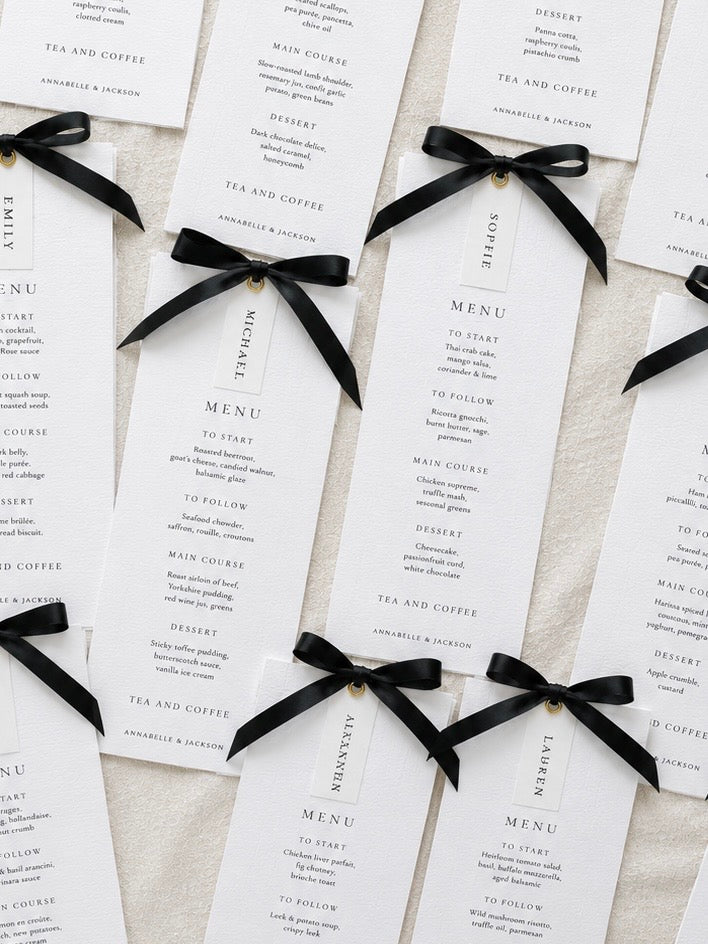 raspberry coulis,
clotted cream
TEA AND COFFEE
ANNABELLE & JACKSON
scallops,
pea purée, pancetta,
chive oil
MAIN COURSE
Slow-roasted lamb shoulder,
rosemary jus, confit garlic
potato, green beans
DESSERT
Dark chocolate delice,
salted caramel,
honeycomb
TEA AND COFFEE
ANNABELLE & JACKSON
DESSERT
Panna cotta,
raspberry coulis,
pistachio crumb
TEA AND COFFEE
ANNABELLE & JACKSON
TEA AND
ANNABELLE &
EMILY
MENU
START
cocktail,
, grapefruit,
Rose sauce
FOLLOW
squash soup,
toasted seeds
COURSE
belly,
purée,
red cabbage
DESSERT
brûlée,
bread biscuit,
AND COFFEE
& JACKSON
MICHAEL
MENU
TO START
Roasted beetroot,
goat's cheese, candied walnut,
balsamic glaze
TO FOLLOW
Seafood chowder,
saffron, rouille, croutons
MAIN COURSE
Roast airloin of beef,
Yorkshire pudding,
red wine jus, greens
DESSERT
Sticky toffee pudding,
butterscotch sauce,
vanilla ice cream
TEA AND COFFEE
ANNABELLE & JACKSON
SOPHIE
MENU
TO START
Thai crab cake,
mango salsa,
coriander & lime
TO FOLLOW
Ricotta gnocchi,
burnt butter, sage,
parmesan
MAIN COURSE
Chicken supreme,
truffle mash,
sesconal greens
DESSERT
Cheesecake,
passionfruit curd,
white chocolate
TEA AND COFFEE
ANNABELLE & JACKSON
M
TO START
Ham
piccalilli, toast
TO FO
Seared
pea purée,
MAIN COURSE
Harissa spiced
couscous, mint
yoghurt, pomegra
DESSERT
Apple crumble,
custard
TEA AND COFFEE
ANNABELLE & JACKSON
NU
START
, hollandaise,
crumb
FOLLOW
& basil arancini,
sauce
COURSE
en croûte,
new potatoes
MENU
TO START
Chicken liver parfait,
fig chutney,
brioche toast
TO FOLLOW
Leek & potato soup,
crispy leek
LABREN
MENU
TO START
Heirloom tomato salad,
basil, buffalo mozzarella,
aged balsamic
TO FOLLOW
Wild mushroom risotto,
truffle oil, parmesan